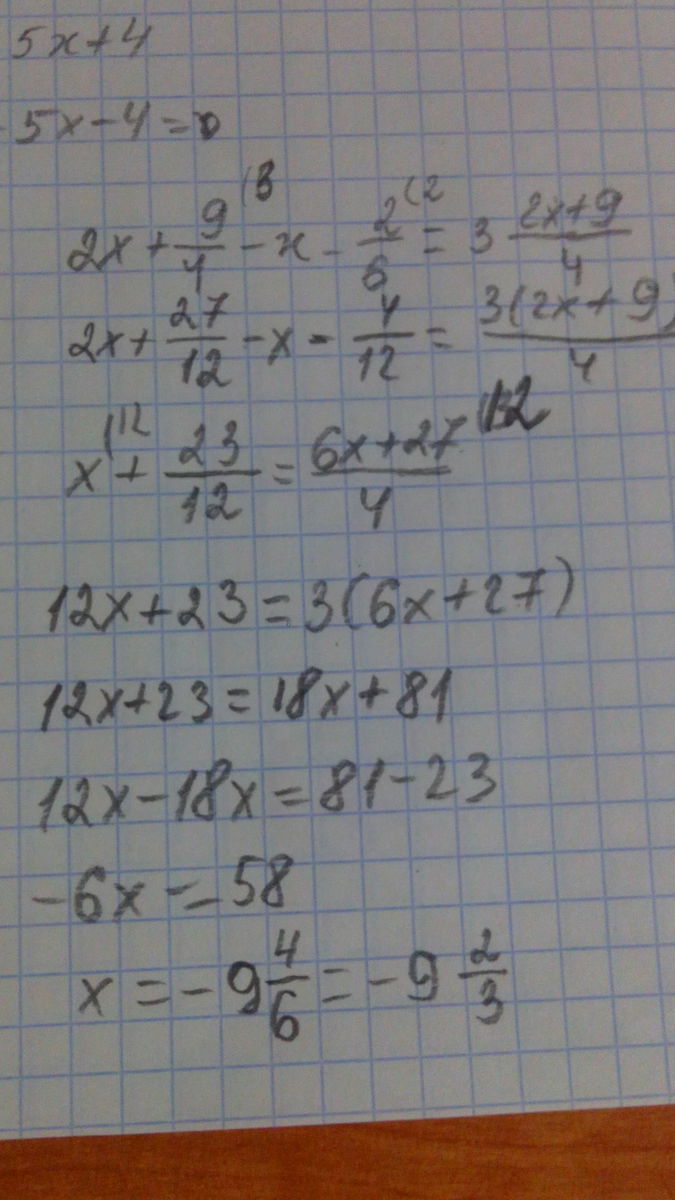 5x+4
5x-4=0
2x + 9/4 (3 - x - 2/6 (2 = 3 (2x+9)/4
2x + 27/12 - x - 4/12 = 3(2x+9)/4
x (12 + 23/12 = (6x+27)/4 (12
12x+23=3(6x+27)
12x+23=18x+81
12x-18x=81-23
-6x=58
x=-9 4/6=-9 2/3